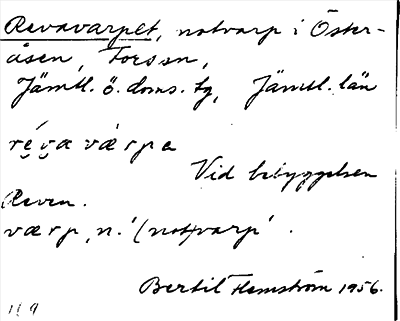 Revavarpet, notvarp i Öster-
åsen, Forsson,
Jämtl. ö. doms. tg, Jämtl. län
réva værpe
Vid bebyggelsen
Reven.
værp, n. '(not)varp'.
Bertil Flemström 1956.